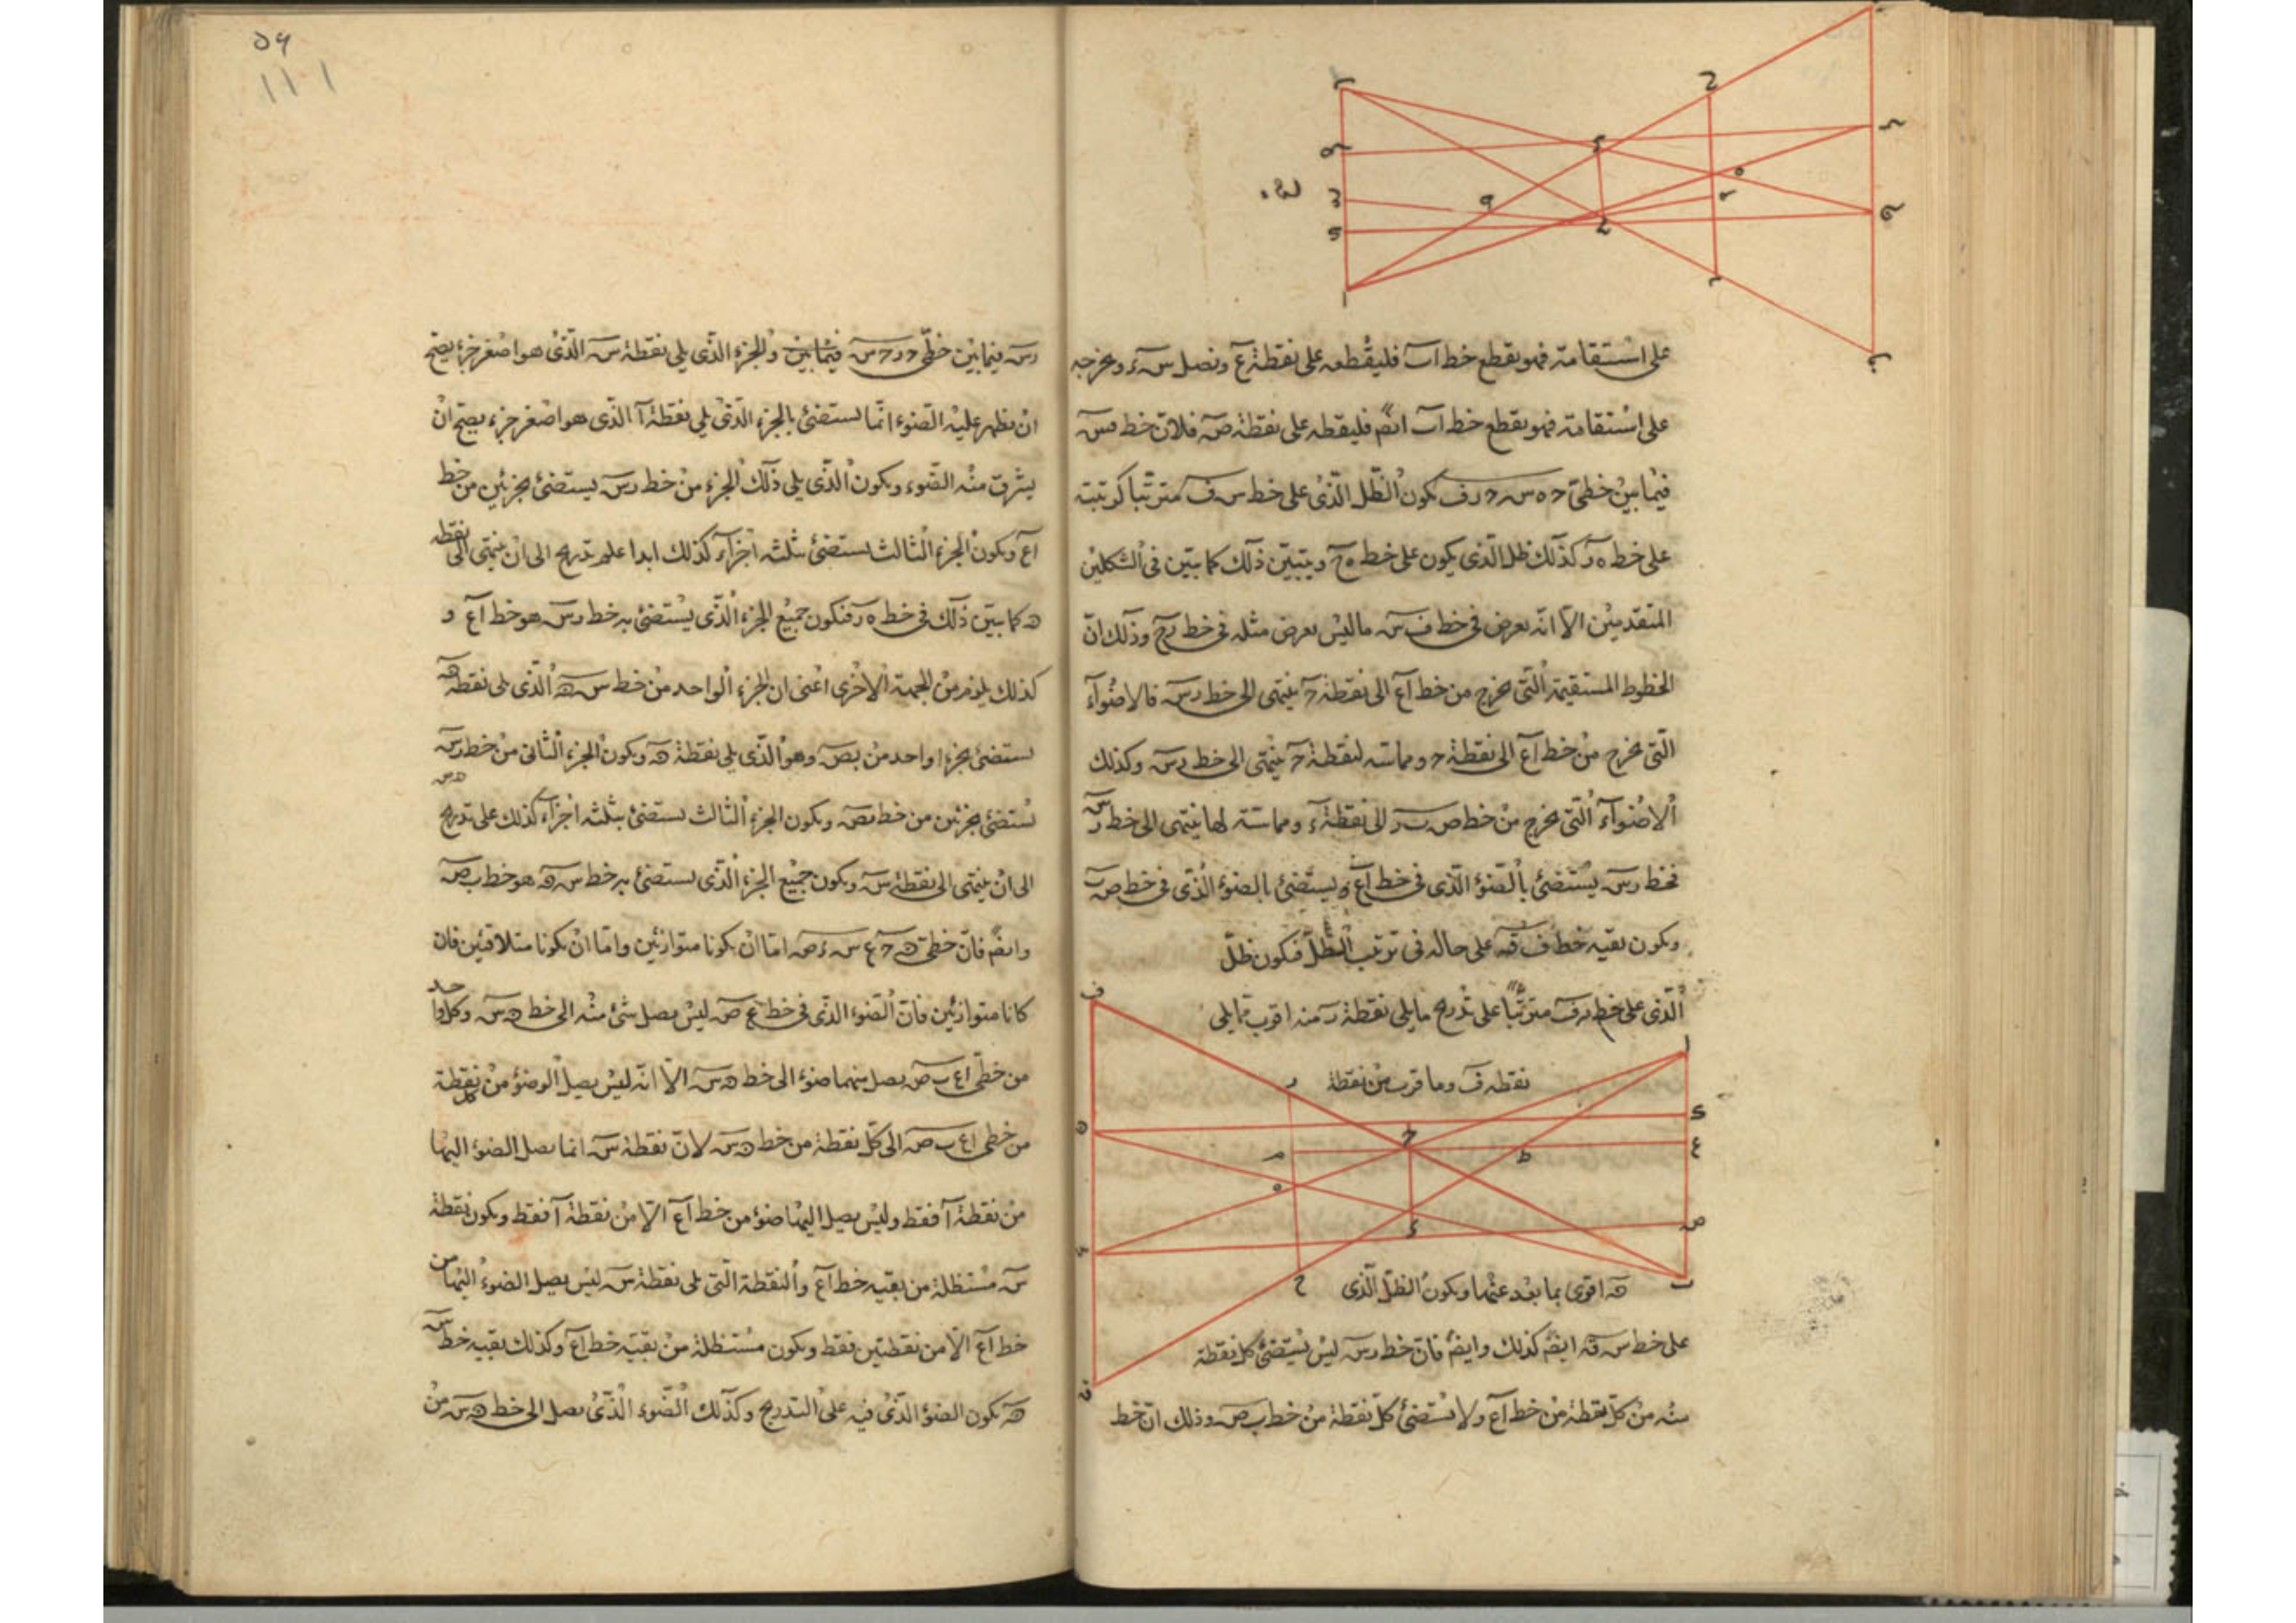 على استقامته فهو يقطع خط اب فليقطعه على نقطة ع ونصل س ء ونخرجه
على استقامته فهو يقطع خط اب ايضم فليقطه على نقطة ص فلان خط
فيما بين خطى ح ه س ح ر ف يكون الظل الذى على خط س ف مترتبا كرتبته
على خط ه ر كذلك ظل الذى يكون على خط ه ح ويتبين ذلك كما تبين فى الشكلين
المتقدمين الا انه يعرض فى خط ف س ما ليس يعرض مثله فى خط ر ح وذلك ان
الخطوط المستقيمة التى تخرج من خط اع الى نقطة ح ينتهى الى خط رس فالاضواء
التى تخرج من خط اع الى نقطة ح ومماسته لنقطة ح ينتهى الى خط رس وكذلك
الاضواء التى تخرج من خط ص ب الى نقطة ء ومماسته لها ينتهى الى خط رس
فخط رس يستضئ بالضوء الذى فى خط اع ويستضئ بالضوء الذى فى خط ص ب
ويكون بقيه خط ف ق على حاله فى ترتب الظل فيكون ظل
الذى على خط ر ف مترتبا على تدريج ما يلى نقطة ر منه اقرب مما يلى
نقطه ف وما قرب من نقطة
ه اقوى بما بعد عنها ويكون الظل الذى
على خط س ق ايضم كذلك وايضم فان خط رس ليس يستضئ كل نقطة
منه من كل نقطة من خط اع ولا يستضئ كل نقطة من خط ب ص وذلك ان خط
٥٩
١١١
رس فيما بين خطى ح ر ح س فيما بين والجزء الذى يلى نقطة س الذى هو اصغر جزء يصح
ان يظهر عليه الضوء انما يستضئ بالجزء الذى يلى نقطة ا الذى هو اصغر جزء يصح ان
يشرق منه الضوء ويكون الذى يلى ذلك الجزء من خط رس يستضئ بجزئين من خط
اع ويكون الجزء الثالث يستضئ بثلثه اجزاء كذلك ابدا على تدريج الى ان ينتهى الى نقطه
ه كما تبين ذلك فى خط ه ر فيكون جميع الجزء الذى يستضئ به خط رس هو خط اع و
كذلك يلزم من الجهة الاخرى اعنى ان الجزء الواحد من خط س ه الذى يلى نقطه ه
يستضئ بجزء واحد من ب ص وهو الذى يلى نقطة ه ويكون الجزء الثانى من خط رس
ه س
يستضئ بجزئين من خط ب ص ويكون الجزء الثالث يستضئ بثلثه اجزاء كذلك على تدريج
الى ان ينتهى الى نقطة س ويكون جميع الجزء الذى يستضئ به خط س ه هو خط ب ص
وايضم فان خطى ه ح ع س ء ص اما ان يكونا متوازيين واما ان يكونا متلاقيين فان
كانا متوازيين فان الضوء الذى فى خط ع ص ليس يصل شئ منه الى خط ه س وكل واحد
من خطى اع ب ص يصل منهما ضوء الى خط ه س الا انه ليس يصل الضوء من كل نقطة
من خطى اع ب ص الى كل نقطة من خط ه س لان نقطة س انما يصل الضوء اليها
من نقطة ا فقط وليس يصل اليها ضوء من خط اع الا من نقطة ا فقط ويكون نقطة
س مستظلة من بقيه خط اع والنقطة التى تلى نقطة س ليس يصل الضوء اليها من
خط اع الا من نقطتين فقط ويكون مستظلة من بقيه خط اع وكذلك بقيه خط س
ه يكون الضوء الذى فيه على التدريج وكذلك الضوء الذى يصل الى خط ه س من